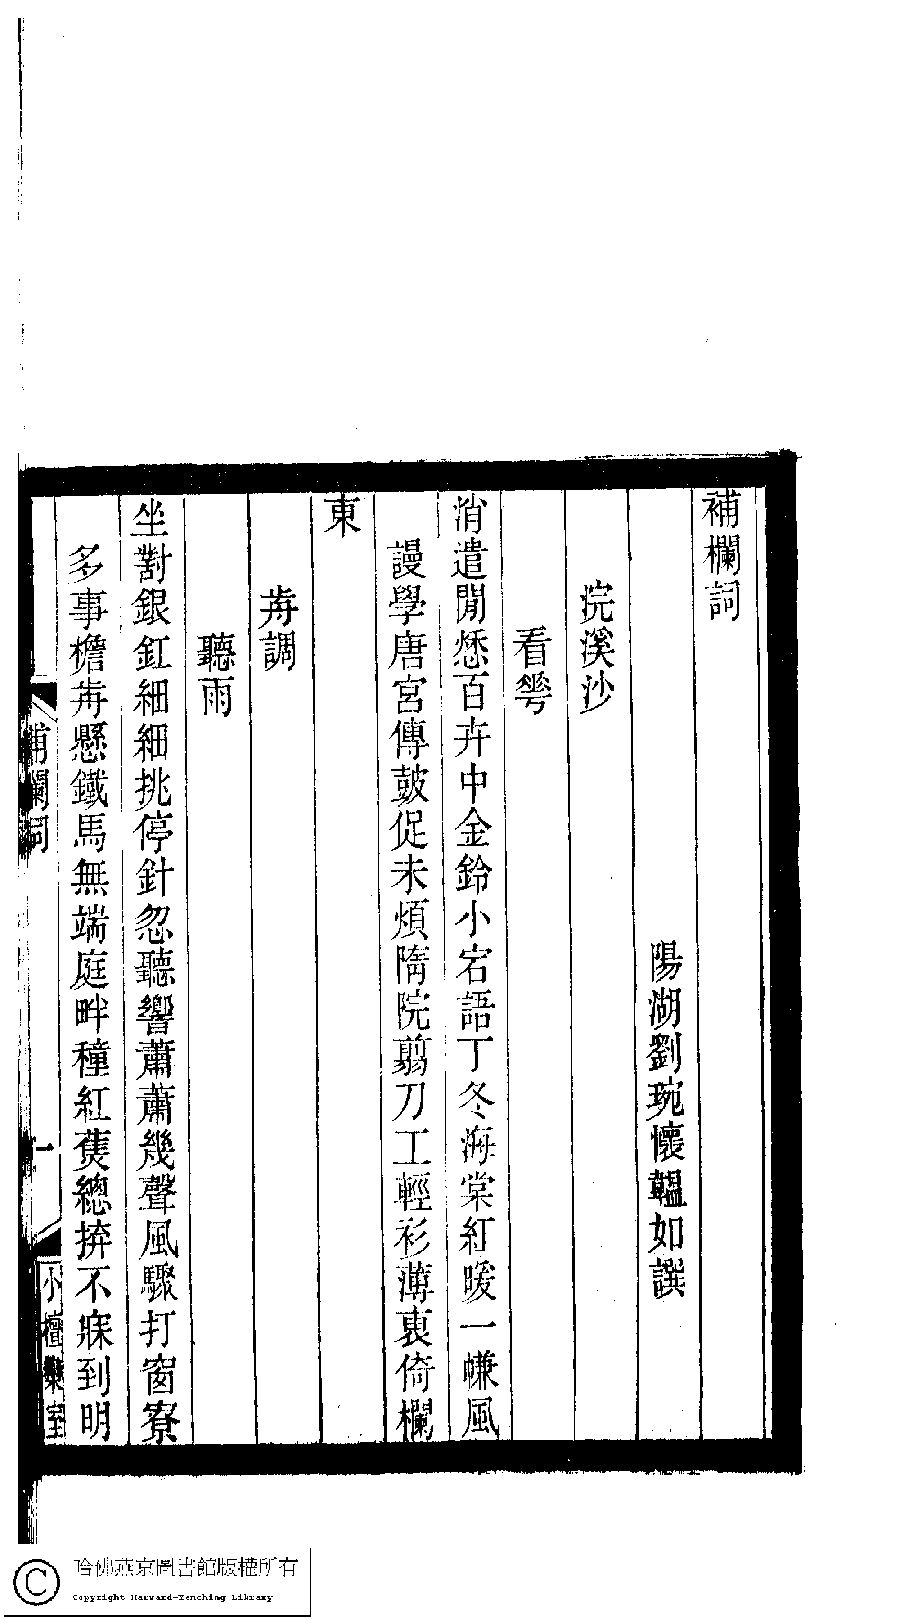 補欄詞
陽湖劉琬懷韞如譔
浣溪沙
看蕚
消遣閒愁百卉中金鈴小宕語丁冬海棠紅暖一㡘風
謾學唐宮傳鼓促未煩隋院翦刀工輕衫薄裏倚欄
東
歬調
聽雨
坐對銀釭細細挑停針忽聽響蕭蕭幾聲風驟打窗寮
多事檐歬懸鐵馬無端庭畔種紅蕉總拚不寐到明
補欄詞
一
小檀欒室
哈佛燕京圖書館版權所有
Copyright Harvard-Yenching Library